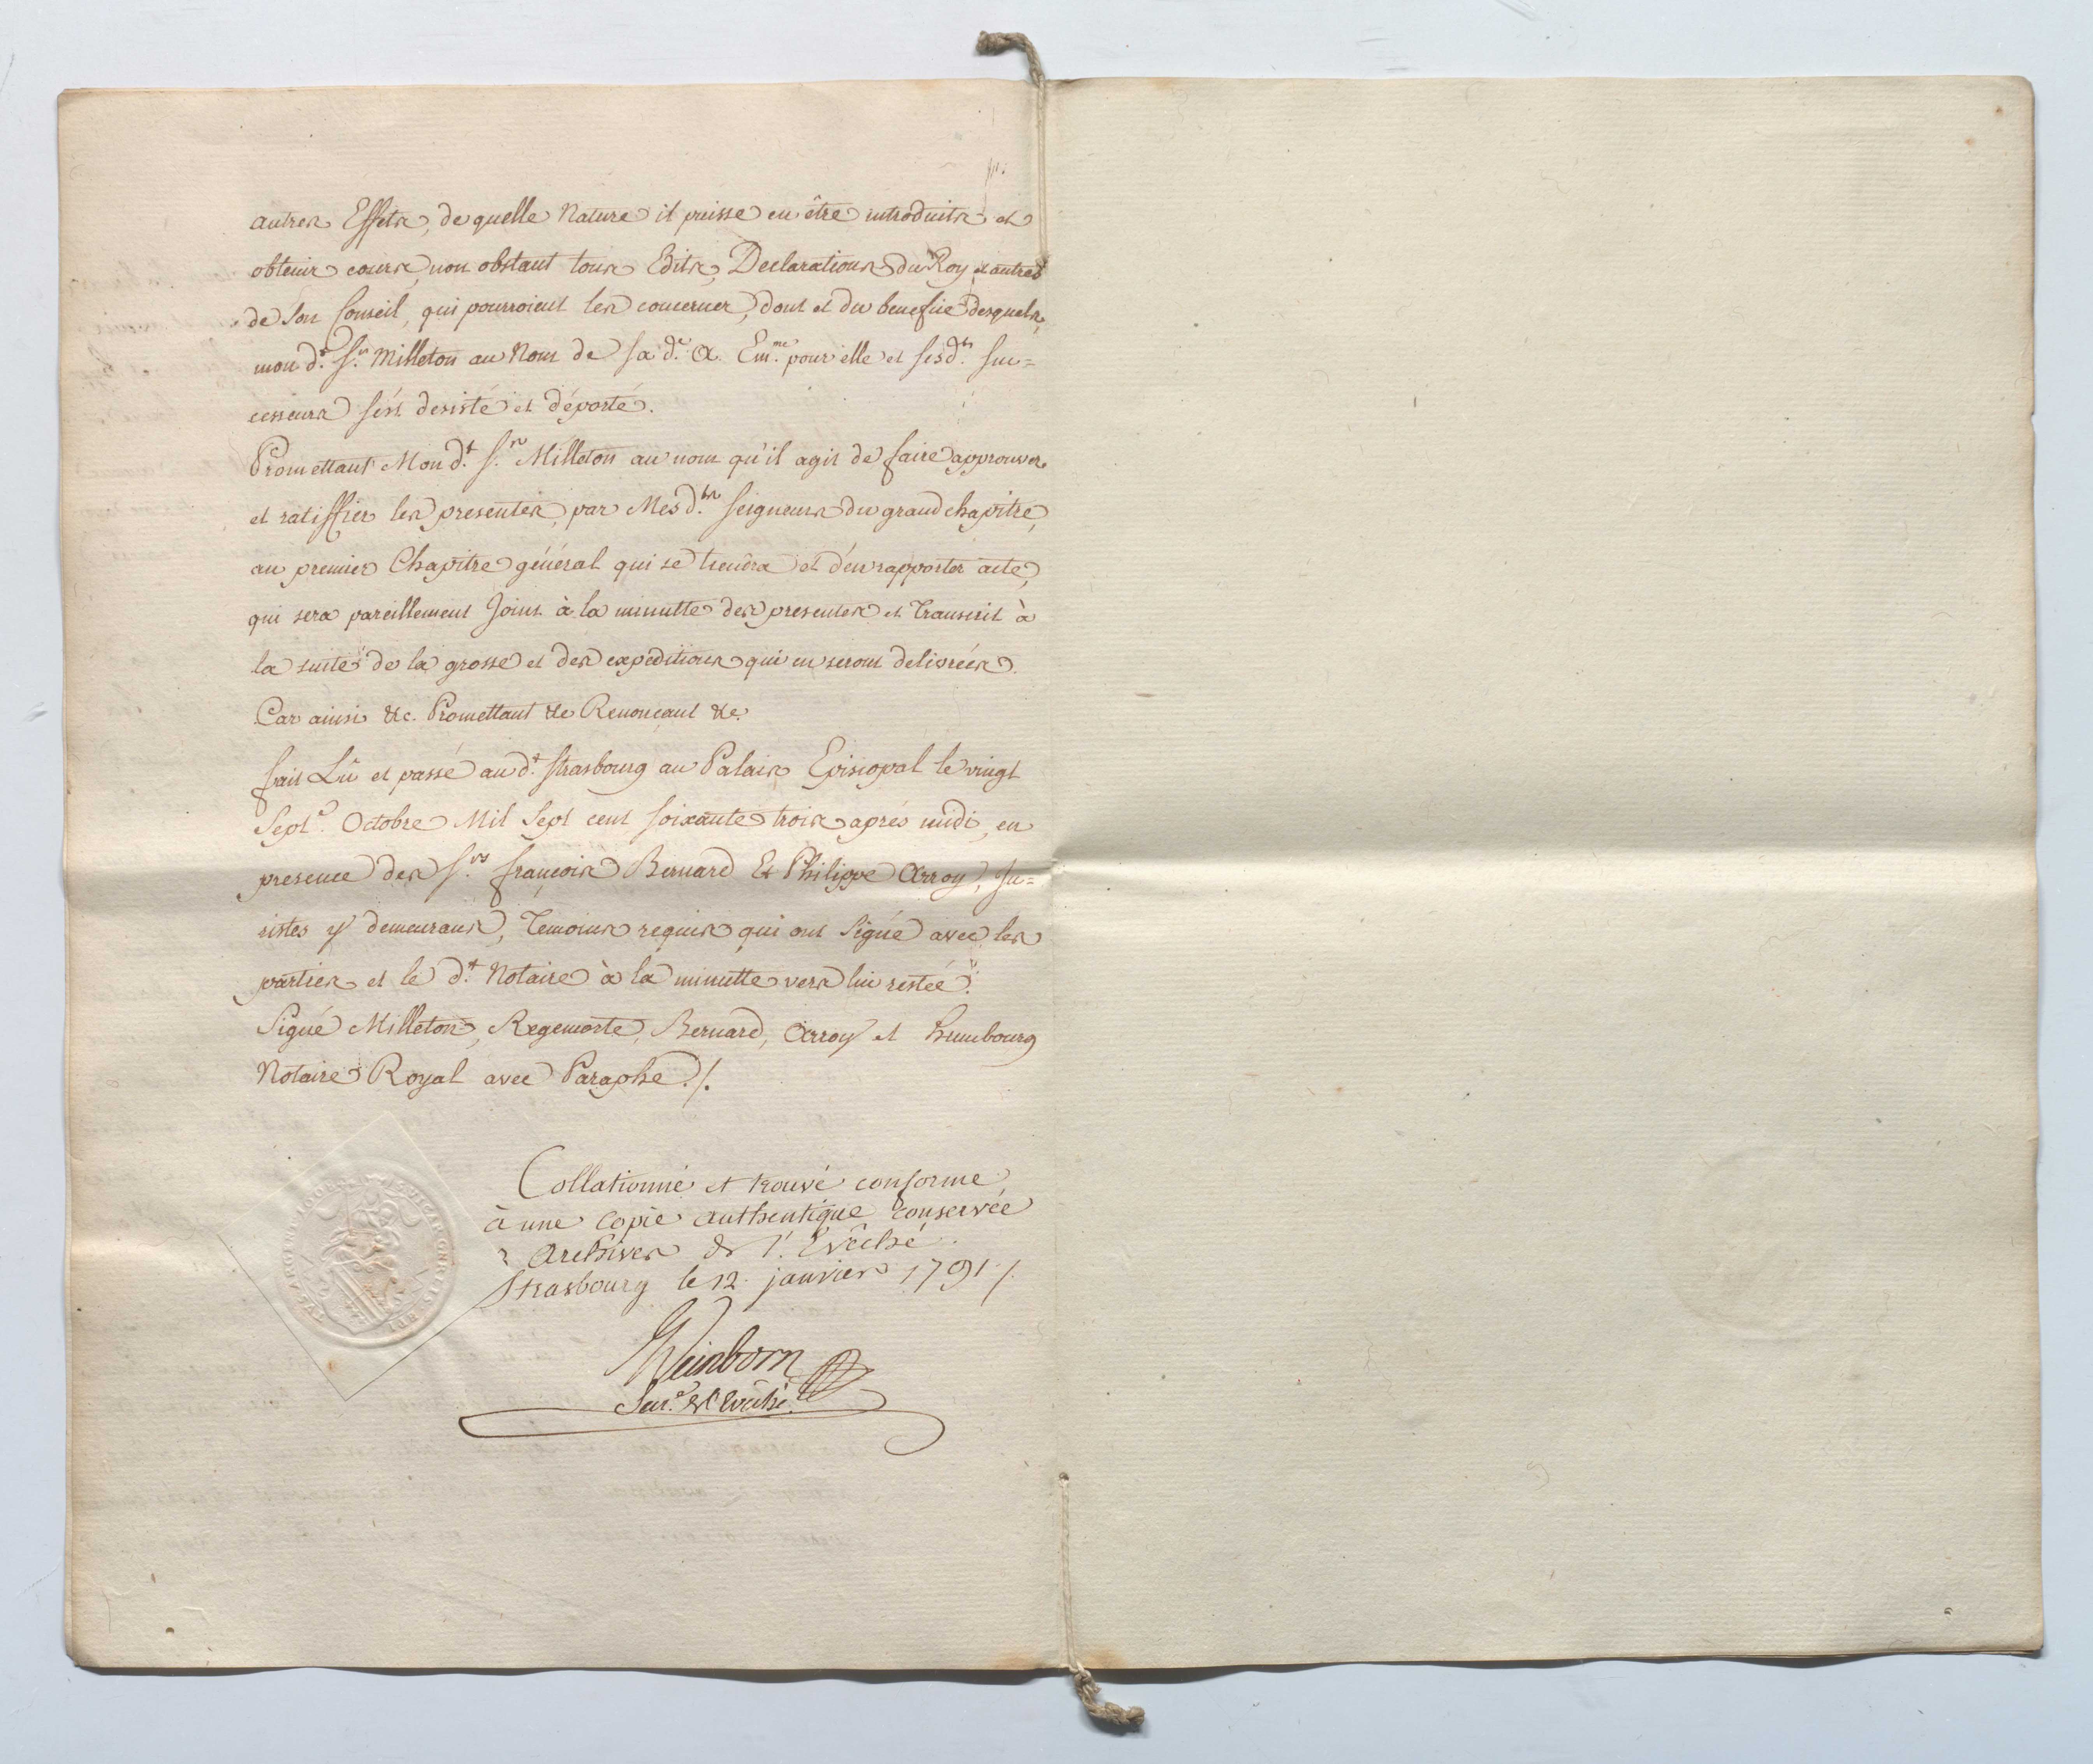 autres Effets, de quelle Nature il puisse en être introduits et
obtenir cours, non obstant tous Edits, Declarations du Roy, et autres
de Son Conseil, qui pourroient les concerner, dont et du benefice desquels,
mon d.t S.r Milleton au Nom de Sa d.e A. Em.me pour elle et ses d.ts Suc=
cesseurs s'est desisté et déporté.
Promettant Mon d.t S.r Milleton au nom qu'il agit de faire approuver
et ratiffier les presentes, par Mes d.ts Seigneurs du grand chapitre,
au premier Chapitre général qui se tiendra et d'en rapporter acte,
qui sera pareillement Joint à la minutte des presentes et Transcrit à
la suite de la grosse et des expeditions qui en seront delivrées.
Car ainsi &c. Promettant &c Renonçant &c.
fait Lû et passé au d.t Strasbourg au Palais Episcopal le vingt
Sept.e Octobre Mil Sept cent soixante trois après midi, en
presence des S.rs françois Bernard Et Philippe Arroy, Ju=
ristes y demeurans, Temoins requis qui ont Signé avec les
parties et le d.t Notaire à la minutte vers lui restée.
Signé Milleton, Regemorte, Bernard, Arroy et Humbourg
Notaire Royal avec Paraphe ./.
Collationné et trouvé conforme
à une copie authentique conservée
Archives de l'Evêché.
Strasbourg le 12. janvier 1791 ./.
Weinborn
Secr.e de l'Evêché.